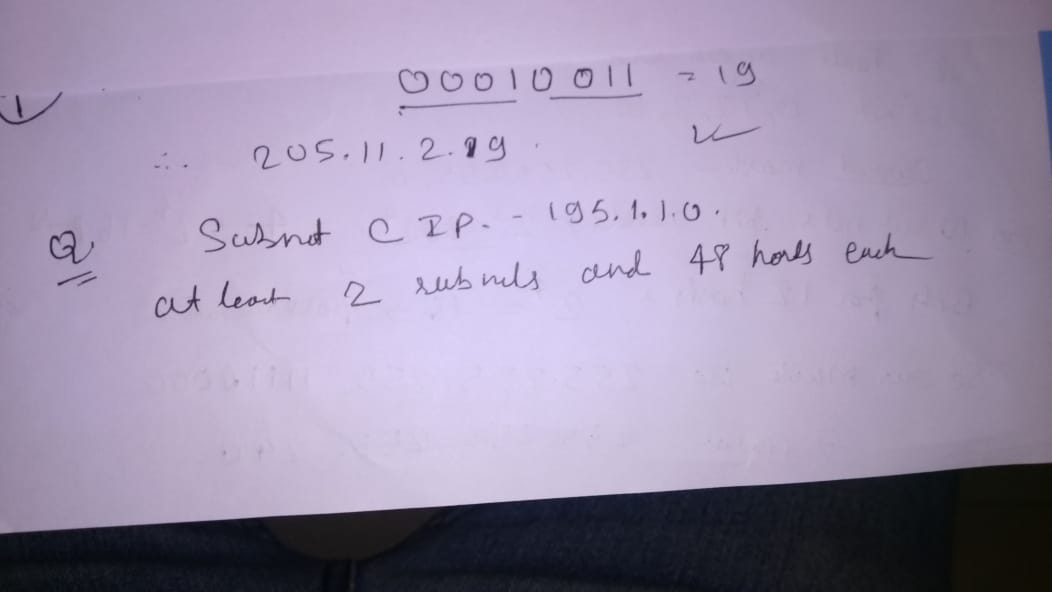 00010011 = 19
1
∴ 205.11.2.19.
Q Subnet C IP. - 195.1.1.0.
at least 2 subnets and 48 hosts each